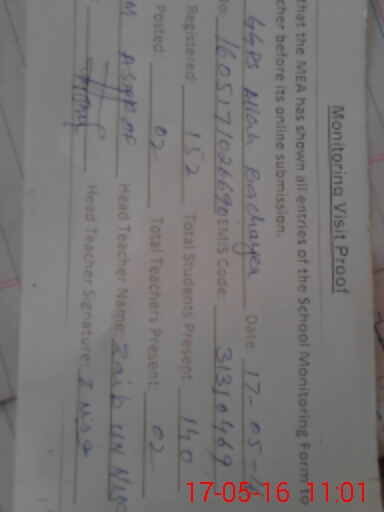 Monitoring Visit Proof
that the MEA has shown all entries of the School Monitoring Form to
cher before its online submission.
GGPS Allah Bachaya Date 17-05-16
No: 16051710266 90 EMIS Code: 31310469
Registered: 152 Total Students Present: 140
Posted: 02 Total Teachers Present: 02
M Head Teacher Name: Zaib un
Head Teacher Signature: Z Nisa
17-05-16 11:01